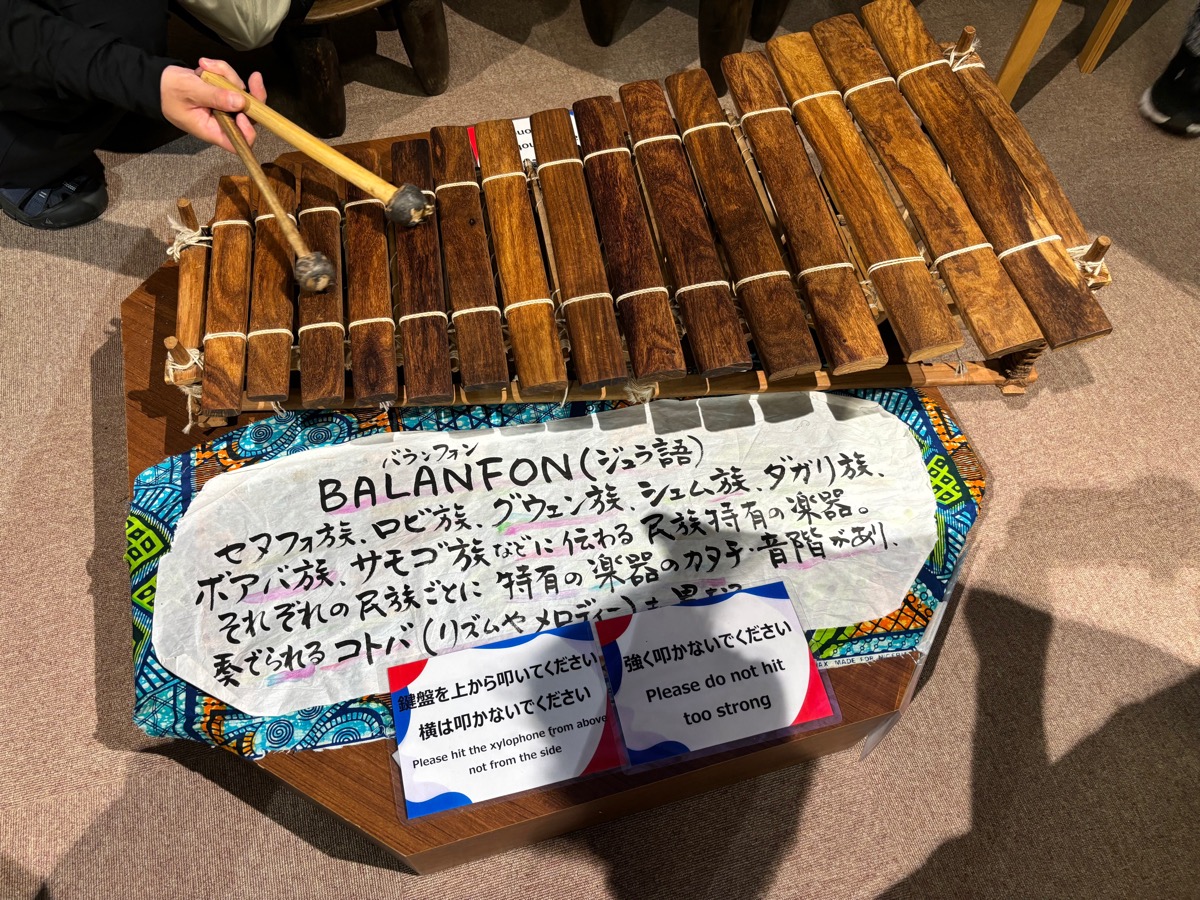 バランフォン
BALANFON(ジュラ語)
セヌフォ族、ロビ族、グウェン族、シェム族、ダガリ族、
ボアバ族、サモゴ族などに伝わる民族特有の楽器。
それぞれの民族ごとに特有の楽器のカタチ・音階があり、
奏でられるコトバ(リズムやメロディー)も異なる
鍵盤を上から叩いてください
横は叩かないでください
Please hit the xylophone from above
not from the side
強く叩かないでください
Please do not hit
too strong
MADE FOR